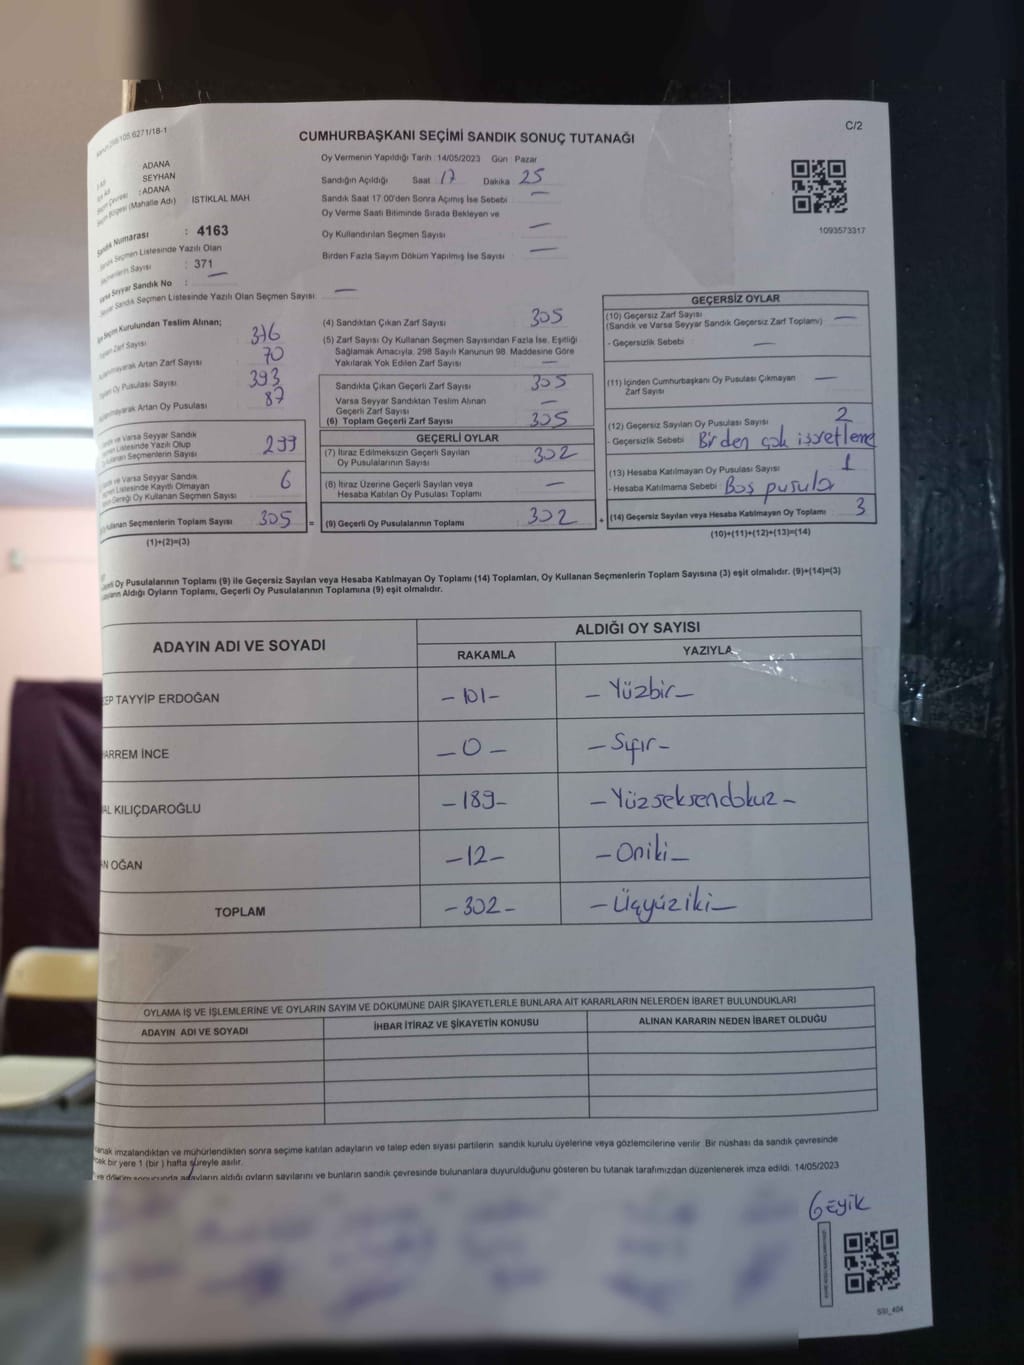 C/2
CUMHURBAŞKANI SEÇİMİ SANDIK SONUÇ TUTANAĞI
ADANA
SEYHAN
: ADANA
(Mahalle Adı) İSTİKLAL MAH
Sandık Numarası : 4163
Sandık Seçmen Listesinde Yazılı Olan
Seçmenlerin Sayısı : 371
Varsa Seyyar Sandık No : —
Seyyar Sandık Seçmen Listesinde Yazılı Olan Seçmen Sayısı: —
Oy Vermenin Yapıldığı Tarih : 14/05/2023 Gün Pazar
Sandığın Açıldığı Saat 17 Dakika 25
Sandık Saat 17.00'den Sonra Açımış İse Sebebi —
Oy Verme Saati Bitiminde Sırada Bekleyen ve
Oy Kullandırılan Seçmen Sayısı —
Birden Fazla Sayım Döküm Yapılmış İse Sayısı —
1093573317
Seçim Kurulundan Teslim Alınan;
Zarf Sayısı 376
Artan Zarf Sayısı 70
Oy Pusulası Sayısı 393
Artan Oy Pusulası 87
ve Varsa Seyyar Sandık
Listesinde Yazılı Olup
Kullanan Seçmenlerin Sayısı 299
ve Varsa Seyyar Sandık
Listesinde Kayıtlı Olmayan
Gereği Oy Kullanan Seçmen Sayısı 6
Kullanan Seçmenlerin Toplam Sayısı 305 =
(1)+(2)=(3)
(4) Sandıktan Çıkan Zarf Sayısı 305
(5) Zarf Sayısı Oy Kullanan Seçmen Sayısından Fazla İse, Eşitliği
Sağlamak Amacıyla, 298 Sayılı Kanunun 98. Maddesine Göre
Yakılarak Yok Edilen Zarf Sayısı —
Sandıkta Çıkan Geçerli Zarf Sayısı 305
Varsa Seyyar Sandıktan Teslim Alınan
Geçerli Zarf Sayısı —
(6) Toplam Geçerli Zarf Sayısı 305
GEÇERLİ OYLAR
(7) İtiraz Edilmeksizin Geçerli Sayılan
Oy Pusulalarının Sayısı 302
(8) İtiraz Üzerine Geçerli Sayılan veya
Hesaba Katılan Oy Pusulası Toplamı —
(9) Geçerli Oy Pusulalarının Toplamı 302 +
GEÇERSİZ OYLAR
(10) Geçersiz Zarf Sayısı
(Sandık ve Varsa Seyyar Sandık Geçersiz Zarf Toplamı) —
- Geçersizlik Sebebi : —
(11) İçinden Cumhurbaşkanı Oy Pusulası Çıkmayan
Zarf Sayısı —
(12) Geçersiz Sayılan Oy Pusulası Sayısı 2
- Geçersizlik Sebebi : Birden çok işaretleme
(13) Hesaba Katılmayan Oy Pusulası Sayısı 1
- Hesaba Katılmama Sebebi : Boş pusula
(14) Geçersiz Sayılan veya Hesaba Katılmayan Oy Toplamı : 3
(10)+(11)+(12)+(13)=(14)
Oy Pusulalarının Toplamı (9) ile Geçersiz Sayılan veya Hesaba Katılmayan Oy Toplamı (14) Toplamları, Oy Kullanan Seçmenlerin Toplam Sayısına (3) eşit olmalıdır. (9)+(14)=(3)
Aldığı Oyların Toplamı, Geçerli Oy Pusulalarının Toplamına (9) eşit olmalıdır.
ADAYIN ADI VE SOYADI ALDIĞI OY SAYISI
RAKAMLA YAZIYLA
TAYYİP ERDOĞAN –101– –Yüzbir–
İNCE –0– –Sıfır–
KILIÇDAROĞLU –189– –Yüzseksendokuz–
OĞAN –12– –Oniki–
TOPLAM –302– –Üçyüziki–
OYLAMA İŞ VE İŞLEMLERİNE VE OYLARIN SAYIM VE DÖKÜMÜNE DAİR ŞİKAYETLERLE BUNLARA AİT KARARLARIN NELERDEN İBARET BULUNDUKLARI
ADAYIN ADI VE SOYADI İHBAR İTİRAZ VE ŞİKAYETİN KONUSU ALINAN KARARIN NEDEN İBARET OLDUĞU
imzalandıktan ve mühürlendikten sonra seçime katılan adayların ve talep eden siyasi partilerin sandık kurulu üyelerine veya gözlemcilerine verilir. Bir nüshası da sandık çevresinde
bir yere 1 (bir ) hafta süreyle asılır.
sonucunda adayların aldığı oyların sayılarını ve bunların sandık çevresinde bulunanlara duyurulduğunu gösteren bu tutanak tarafımızdan düzenlenerek imza edildi. 14/05/2023
Geyik
SSI_404